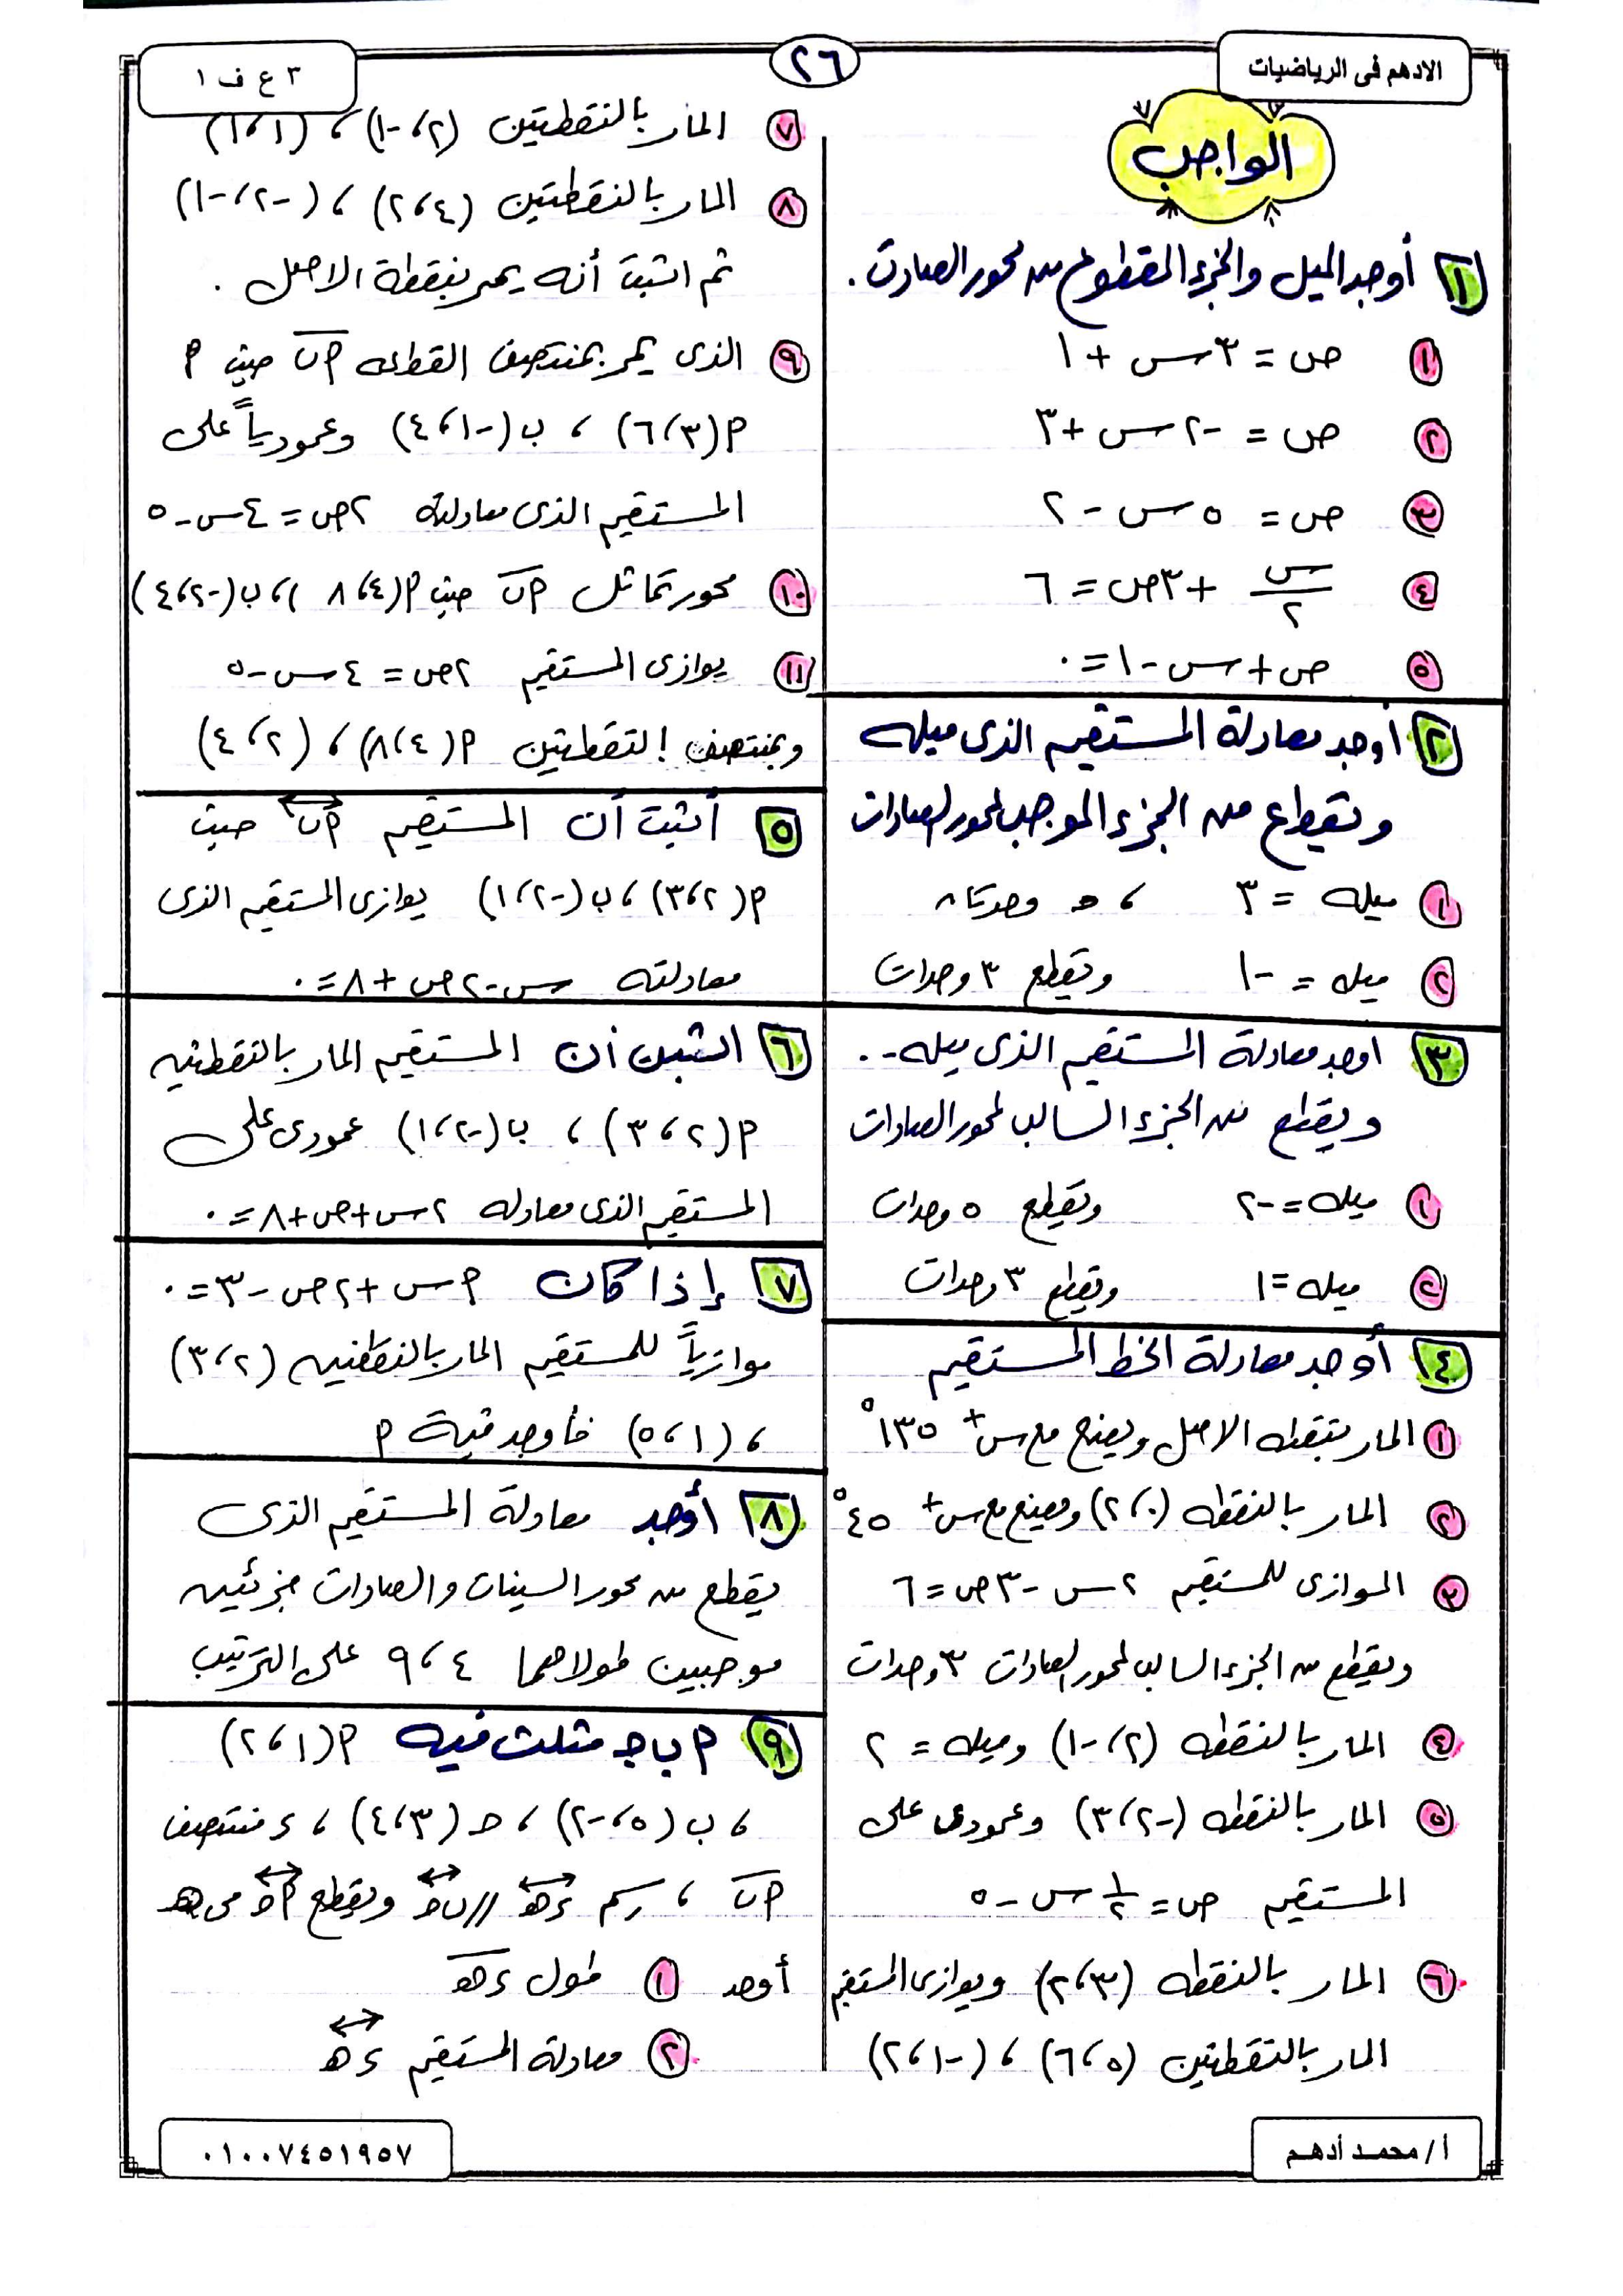 الادهم فى الرياضيات
٢٦
٣ ع ف ١
الواجب
١ أوجد الميل والجزء المقطوع من محور الصادات .
١ ص = ٣س + ١
٢ ص = -٢س + ٣
٣ ص = ٥س - ٢
٤ س/٢ + ٣ص = ٦
٥ ص + س - ١ = ٠
٢ أوجد معادلة المستقيم الذى ميله
ويقطع من الجزء الموجب لمحور الصادات
١ ميله = ٣ ، ح وحدتان
٢ ميله = -١ ويقطع ٣ وحدات
٣ اوجد معادلة المستقيم الذى ميله ..
ويقطع من الجزء السالب لمحور الصادات
١ ميله = -٢ ويقطع ٥ وحدات
٢ ميله = ١ ويقطع ٣ وحدات
٤ أوجد معادلة الخط المستقيم
١ المار بنقطه الاصل ويصنع مع س+ ١٣٥°
٢ المار بالنقطه (٠،٢) ويصنع مع س+ ٤٥°
٣ الموازى للمستقيم ٢س - ٣ص = ٦
ويقطع من الجزء السالب لمحور الصادات ٣ وحدات
٤ المار بالنقطه (٢،-١) وميله = ٢
٥ المار بالنقطه (-٢،٣) وعمودى على
المستقيم ص = ١/٢ س - ٥
٦ المار بالنقطه (٣،٢) ويوازى المستقيم
المار بالنقطتين (٥،٦) ، (-١،٢)
٧ المار بالنقطتين (٢،-١) ، (١،١)
٨ المار بالنقطتين (٤،٢) ، (-٢،-١)
ثم اثبت أنه يمر بنقطة الاصل .
٩ الذى يمر بمنتصف القطعه اب حيث ا
ا(٣،٦) ، ب(-١،٤) وعمودياً على
المستقيم الذى معادلته ٢ص = ٤س - ٥
١٠ محور تماثل اب حيث ا(٤،٨) ، ب(-٢،٤)
١١ يوازى المستقيم ٢ص = ٤س - ٥
وبمنتصف النقطتين ا(٤،٨) ، (٢،٤)
٥ أثبت أن المستقيم اب حيث
ا(٢،٣) ، ب(-٢،١) يوازى المستقيم الذى
معادلته س - ٢ص + ٨ = ٠
٦ اثبت أن المستقيم المار بالنقطتين
ا(٢،٣) ، ب(-٢،١) عمودى على
المستقيم الذى معادله ٢س + ص + ٨ = ٠
٧ إذا كان اس + ٢ص - ٣ = ٠
موازياً للمستقيم المار بالنقطتين (٢،٣)
، (١،٥) فأوجد قيمة ا
٨ أوجد معادلة المستقيم الذى
يقطع من محور السينات والصادات جزئين
موجبين طولاهما ٤ ، ٩ على الترتيب
٩ اب جـ مثلث فيه ا(١،٢)
، ب(٥،-٢) ، حـ(٣،٤) ، ء منتصف
اب ، رسم ءهـ // بحـ ويقطع احـ فى هـ
أوجد ١ طول ءهـ
٢ معادلة المستقيم ءهـ
أ/ محمد أدهم
٠١٠٠٧٤٥١٩٥٧